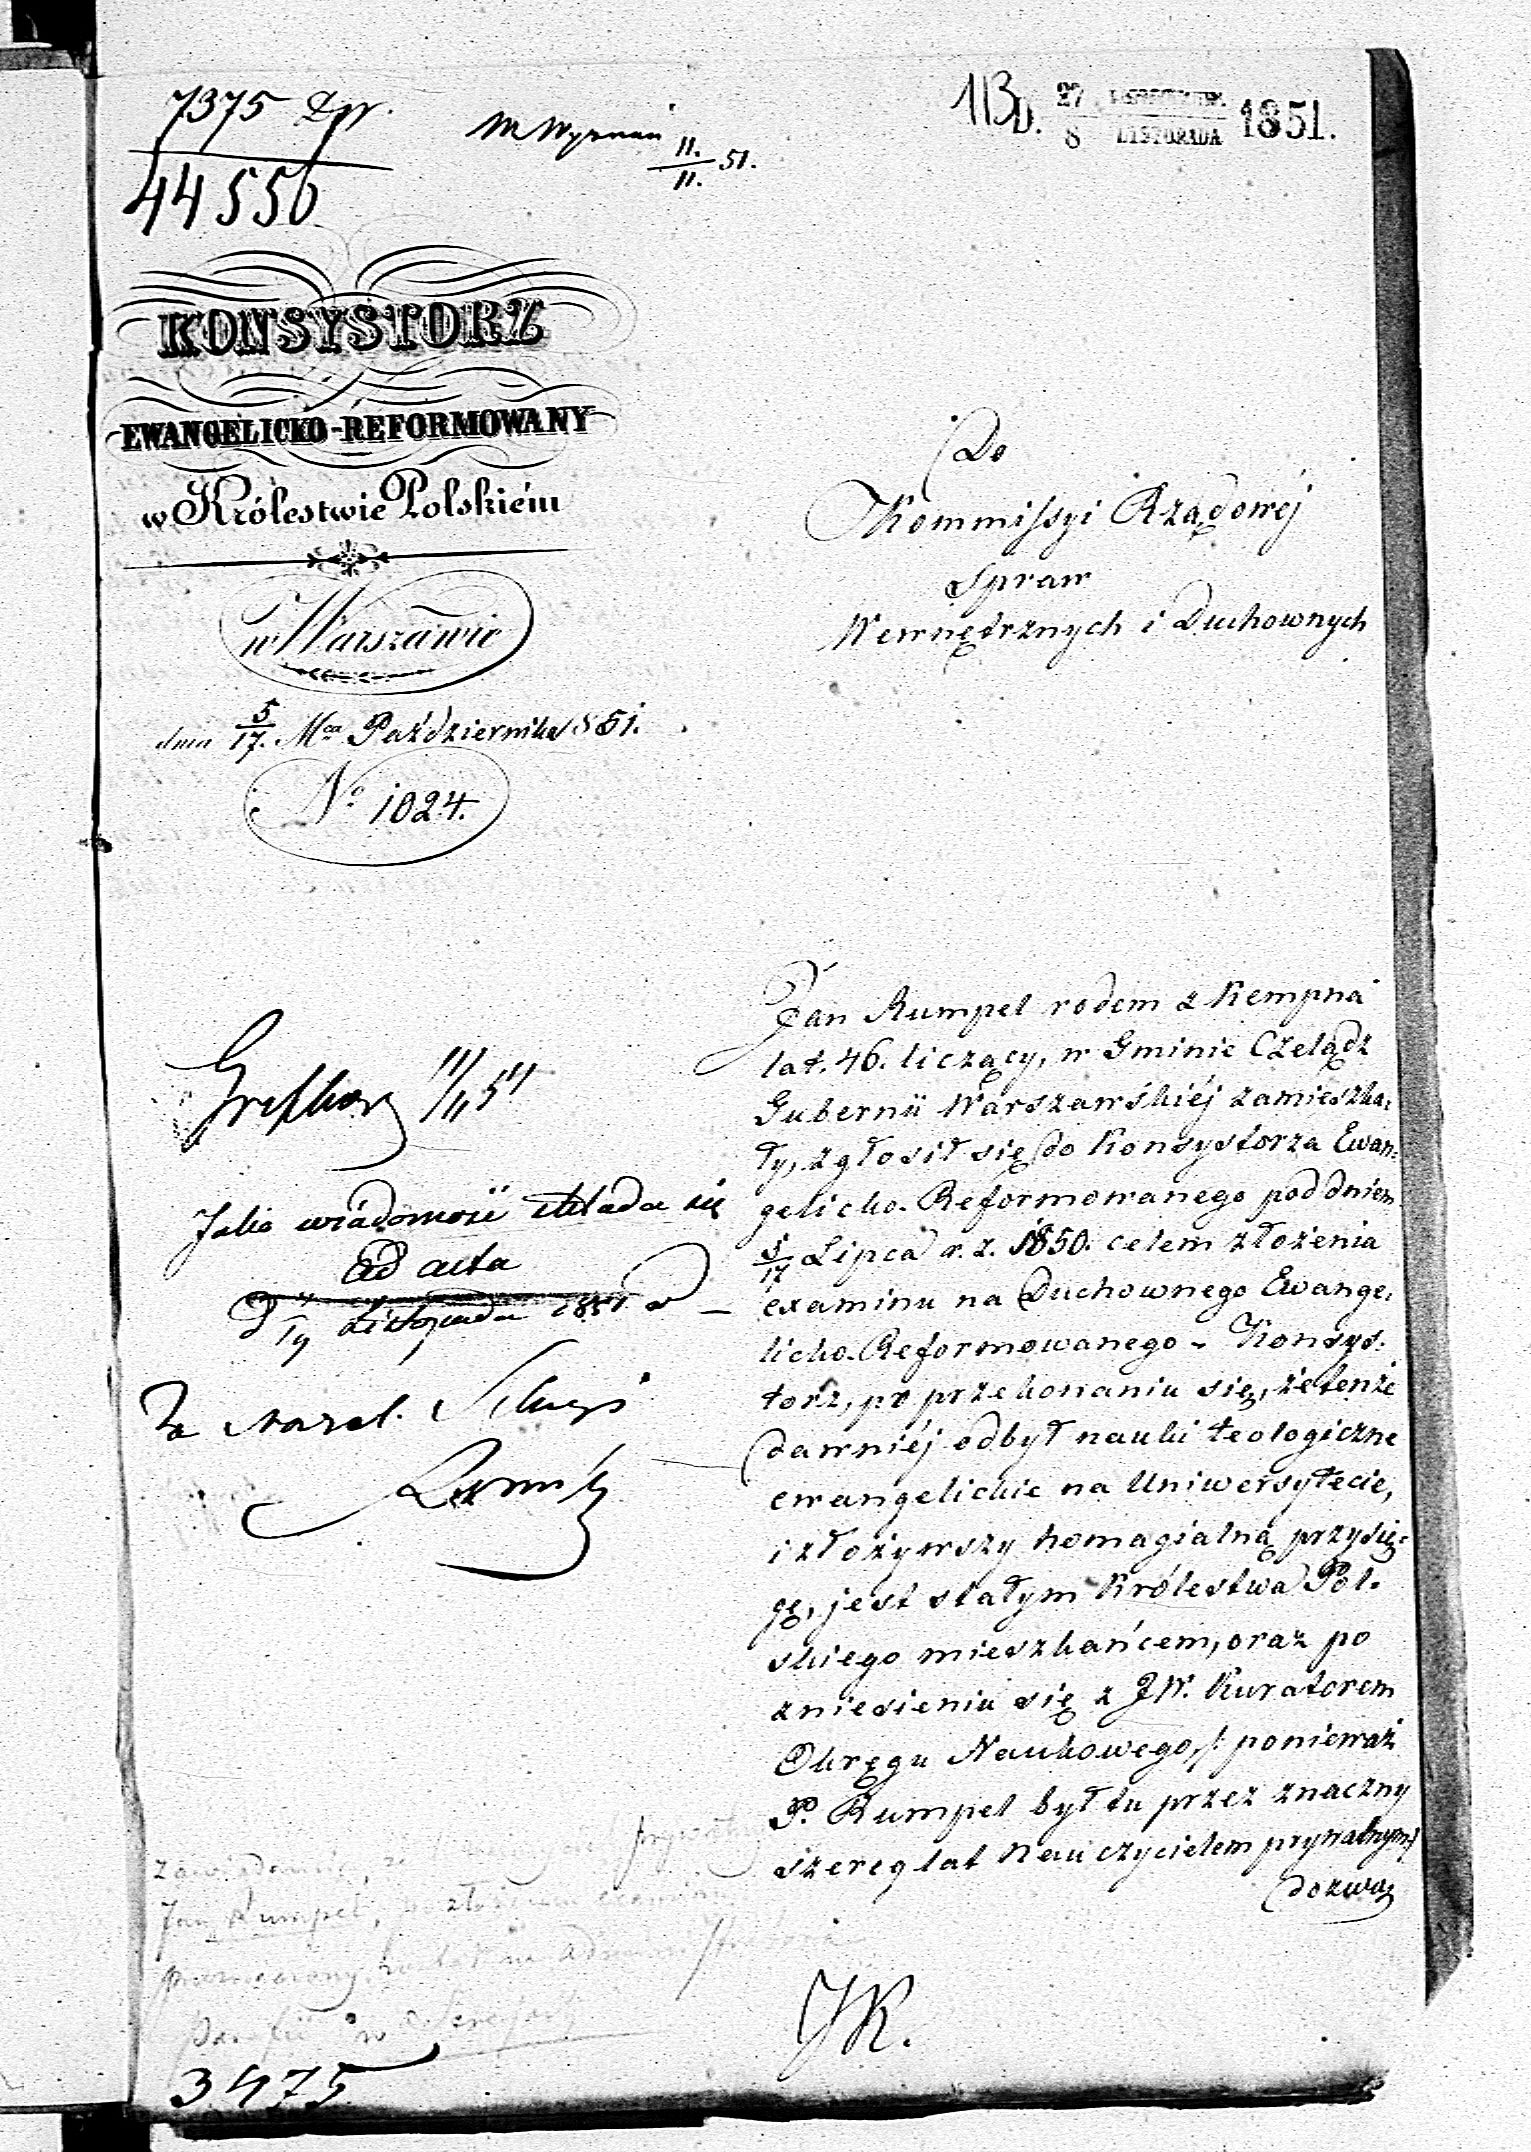 7375
44556
w Wyznań 11./11. 51.
113 D. 27/8 LISTOPADA 1851.
KONSYSTORZ
EWANGELICKO-REFORMOWANY
w Królestwie Polskiém
w Warszawie
dnia 5/17. Mca Października 1851.
No. 1024.
Do
Kommissyi Rządowéj
Spraw
Wewnętrznych i Duchownych
Jan Rumpel rodem z Kempna
lat. 46. liczący, w Gminie Czeladz
Gubernii Warszawskiéj zamieszka,
ły, zgłosił się do Konsystorza Ewan=
gelicko. Reformowanego pod dniem
5/17 Lipca r. z. 1850. celem złożenia
examinu na Duchownego Ewange,
licko. Reformowanego - Konsys:
torz, po przekonaniu się, że tenże
dawniéj odbył nauki teologiczne
ewangelickie na Uniwersytecie,
i złożywszy homagialną przysię=
gę, jest stałym Królestwa Pol.
skiego mieszkańcem, oraz po
zniesieniu się z JW. Kuratorem
Okręgu Naukowego, /: ponieważ
P. Rumpel był tu przez znaczny
szereg lat Nauczycielem prywatnym/
dozwa,
11/11 51
Jako wiadomość składa się
Ad acta
D Listopada 1851 r
Za Nacz.
Jan Rumpel,
parafii w
3475
JK.